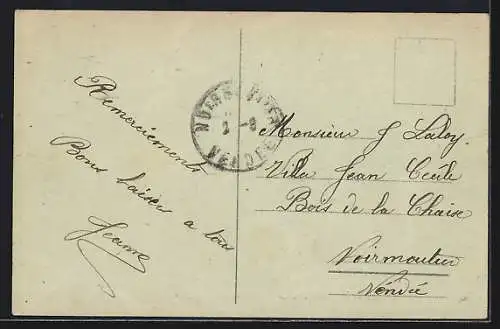 Remerciements
Bons baisers a tous
Jeanne
VENDEE
Monsieur J Laloy
Villa Jean Cecile
Bois de la Chaise
Noirmoutier
Vendée